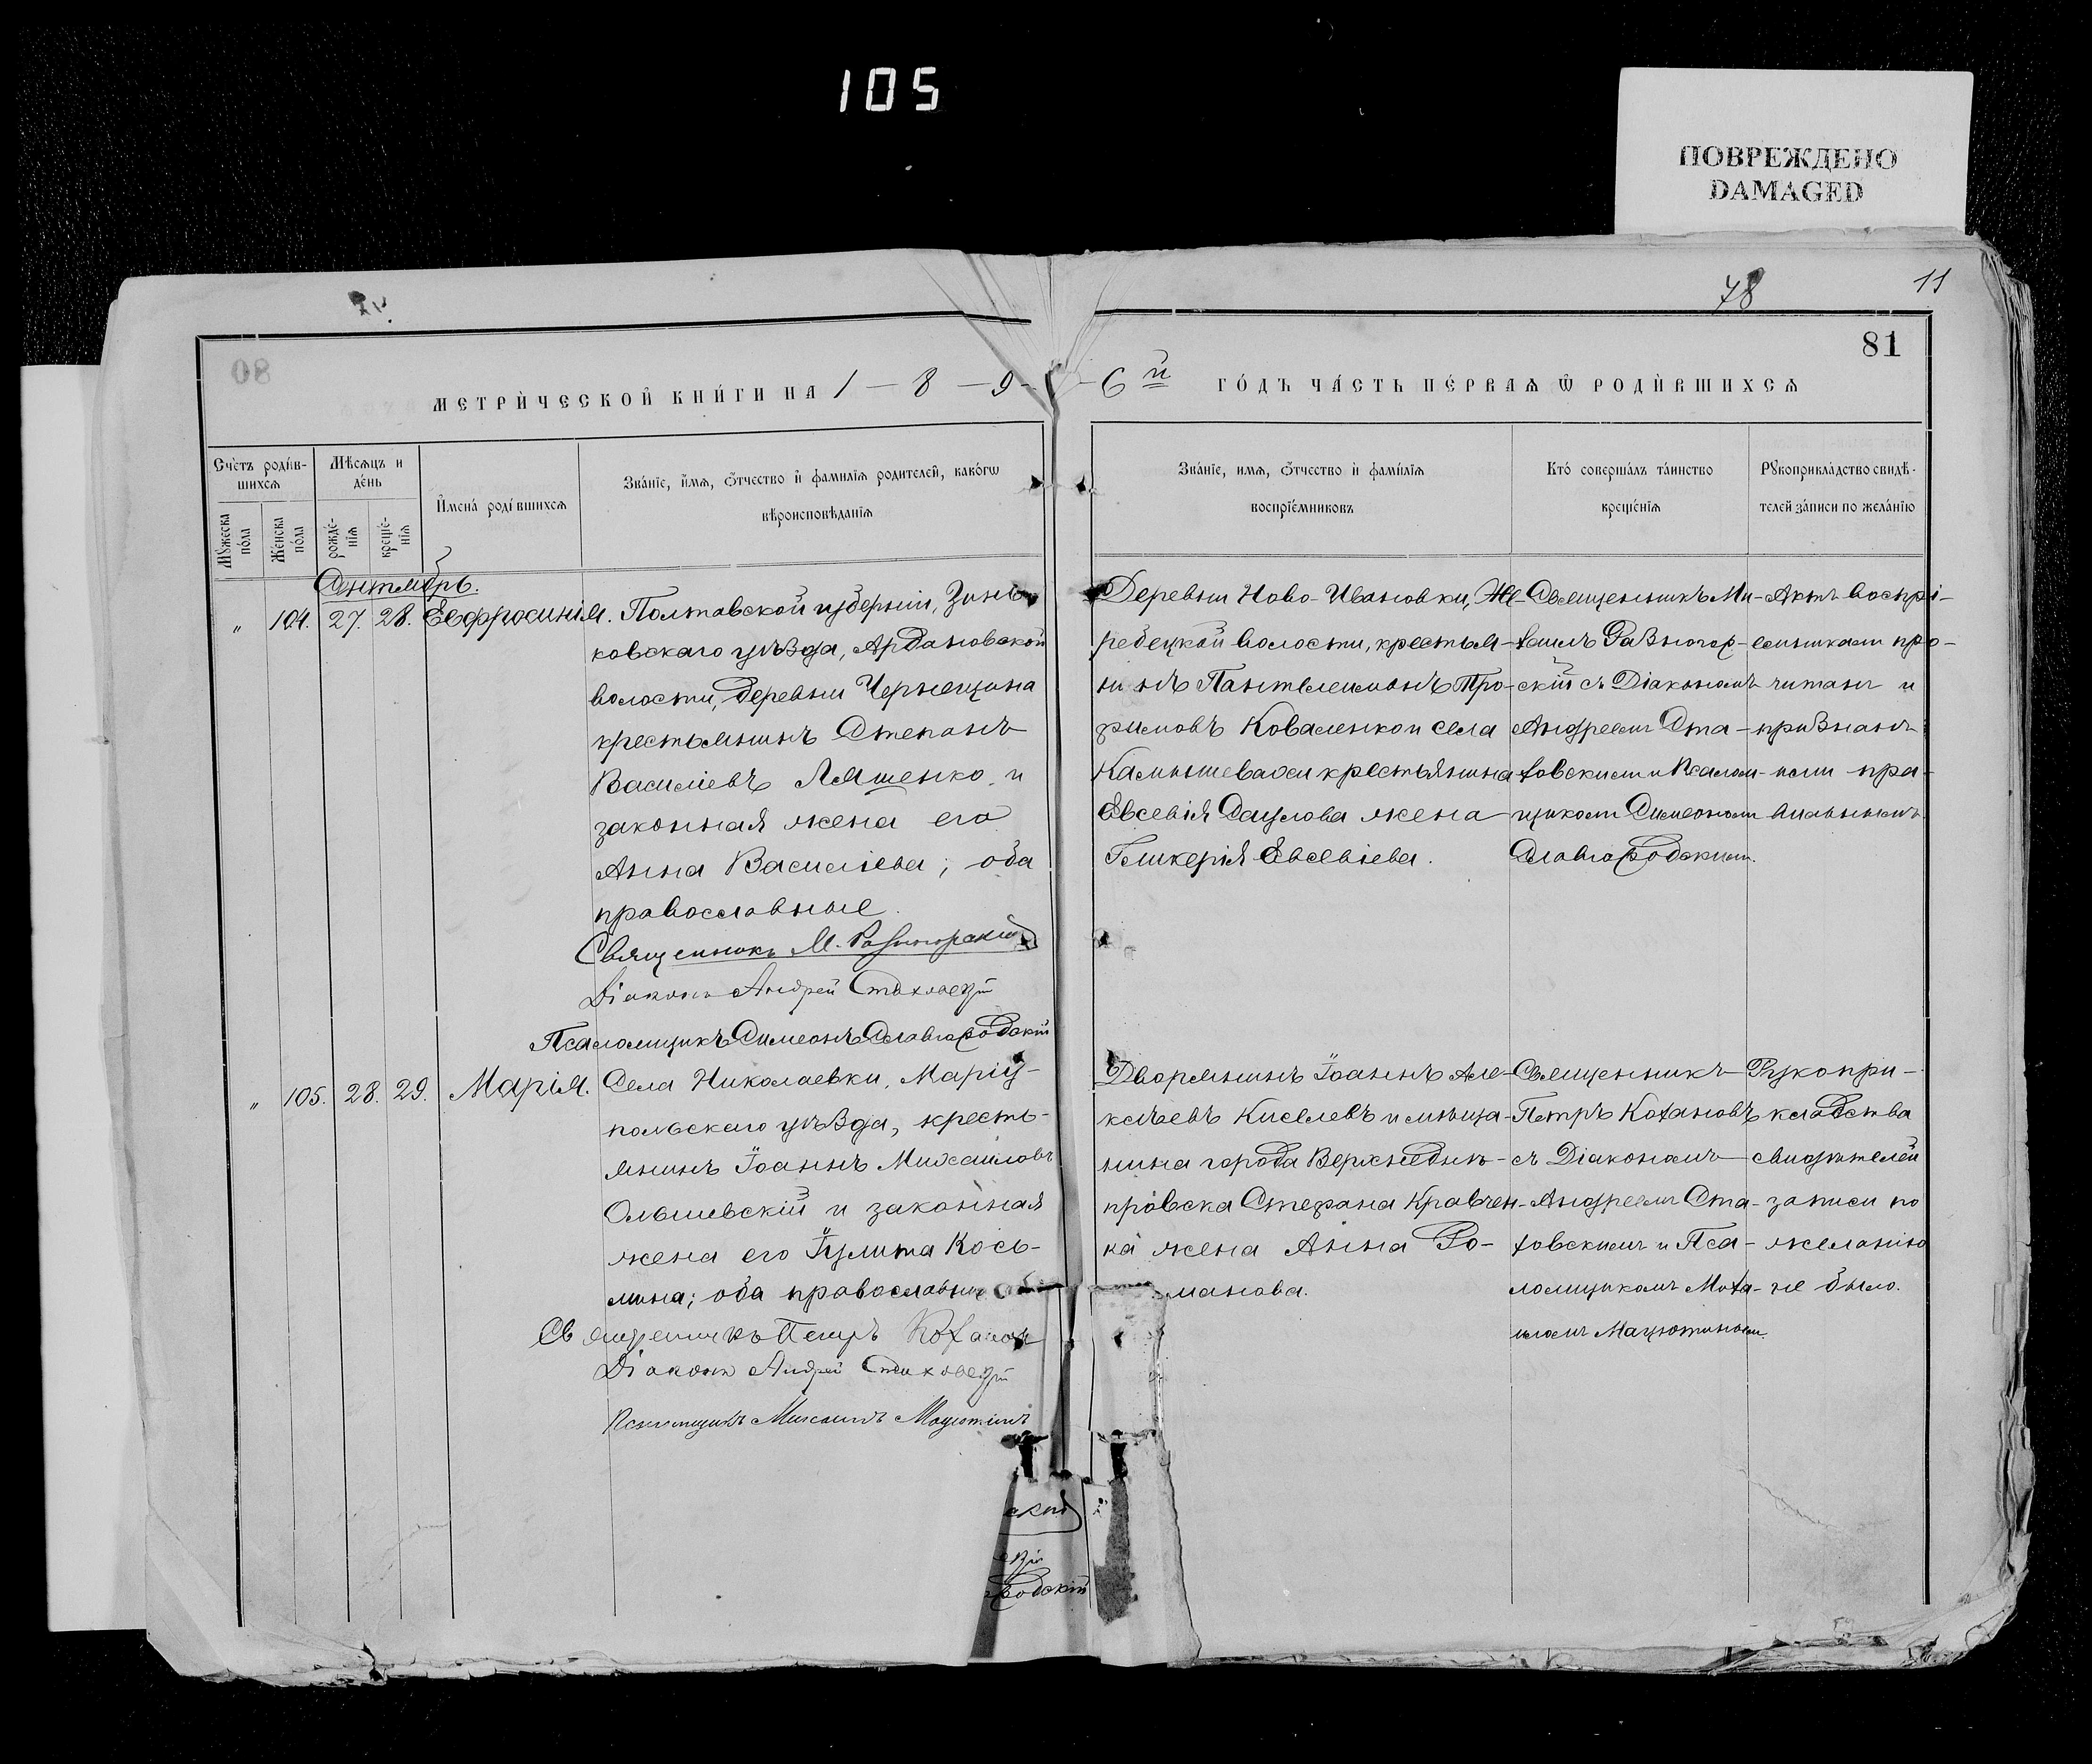 105
ПОВРЕЖДЕНО
DAMAGED
78
11
81
80
МЕТРИ́ЧЕСКОЙ КНИ́ГИ НА 1 - 8 - 9 -
- 6й ГО́ДЪ ЧА́СТЬ ПЕ́РВАѦ Ѿ РОДИ́ВШИХСѦ
Счётъ роди́в-
шихсѧ
Мѣсѧцъ и
де́нь
Мꙋжеска
по́ла
Же́нска
по́ла
рожде́-
нїѧ
креще́-
нїѧ
Имена́ роди́вшихсѧ
Зва́нїе, и́мѧ, ѻ́тчество и҆ фами́лїѧ родителей, како́гѡ
вѣроисповѣданїѧ
Зва́нїе, имѧ, ѻ́тчество и҆ фами́лїѧ
воспрїе́мниковъ
Кто́ соверша́лъ та́инство
креще́нїѧ
Рꙋкоприкла́дство свидѣ-
телей за́писи по жела́нїю
Сентябрь.
" 104. 27. 28. Евфросинія.
Полтавской губерніи, Зинь-
ковскаго уѣзда, Ардановской
волости, деревни Чернещина
крестьянинъ Степанъ
Василіевъ Ляшенко и
законная жена его
Анна Василіева; оба
православные.
Священникъ М. Разногорскій
Діаконъ Андрей Стаховскій
Псаломщикъ Симеонъ Славгородскій
Деревни Ново-Ивановки, Же-
ребецкой волости, крестья-
нинъ Пантелеимонъ Тро-
фимовъ Коваленко и села
Камышевахи крестьянина
Евсевія жена
Гликерія Евсевіева.
Священникъ Ми-
хаилъ Разногор-
скій съ Діакономъ
Андреемъ Ста-
ховскимъ и Псалом-
щикомъ Симеономъ
Славгородскимъ.
Актъ воспрі-
емникам про-
читанъ и
признанъ
ими пра-
вильнымъ.
" 105. 28. 29. Марія.
Села Николаевки, Маріу-
польскаго уѣзда, кресть-
янинъ Іоаннъ Михаиловъ
Ольшевскій и законная
жена его Іулита Кось-
мина; оба православные
Священникъ Петръ Кохановъ
Діаконъ Андрей Стаховскій
Псаломщикъ Михаилъ Мацютинъ
Дворянинъ Іоаннъ Але-
ксѣевъ Киселевъ и мѣща-
нина города Верхнеднѣ-
провска Стефана Кравчен-
ка жена Анна Ро-
манова.
Священникъ
Петръ Кохановъ
съ Діакономъ
Андреемъ Ста-
ховскимъ и Пса-
ломщикомъ Миха-
иломъ Мацютинымъ.
Рукопри-
кладства
свидѣтелей
записи по
желанію
не было.
скій
скій
родскій